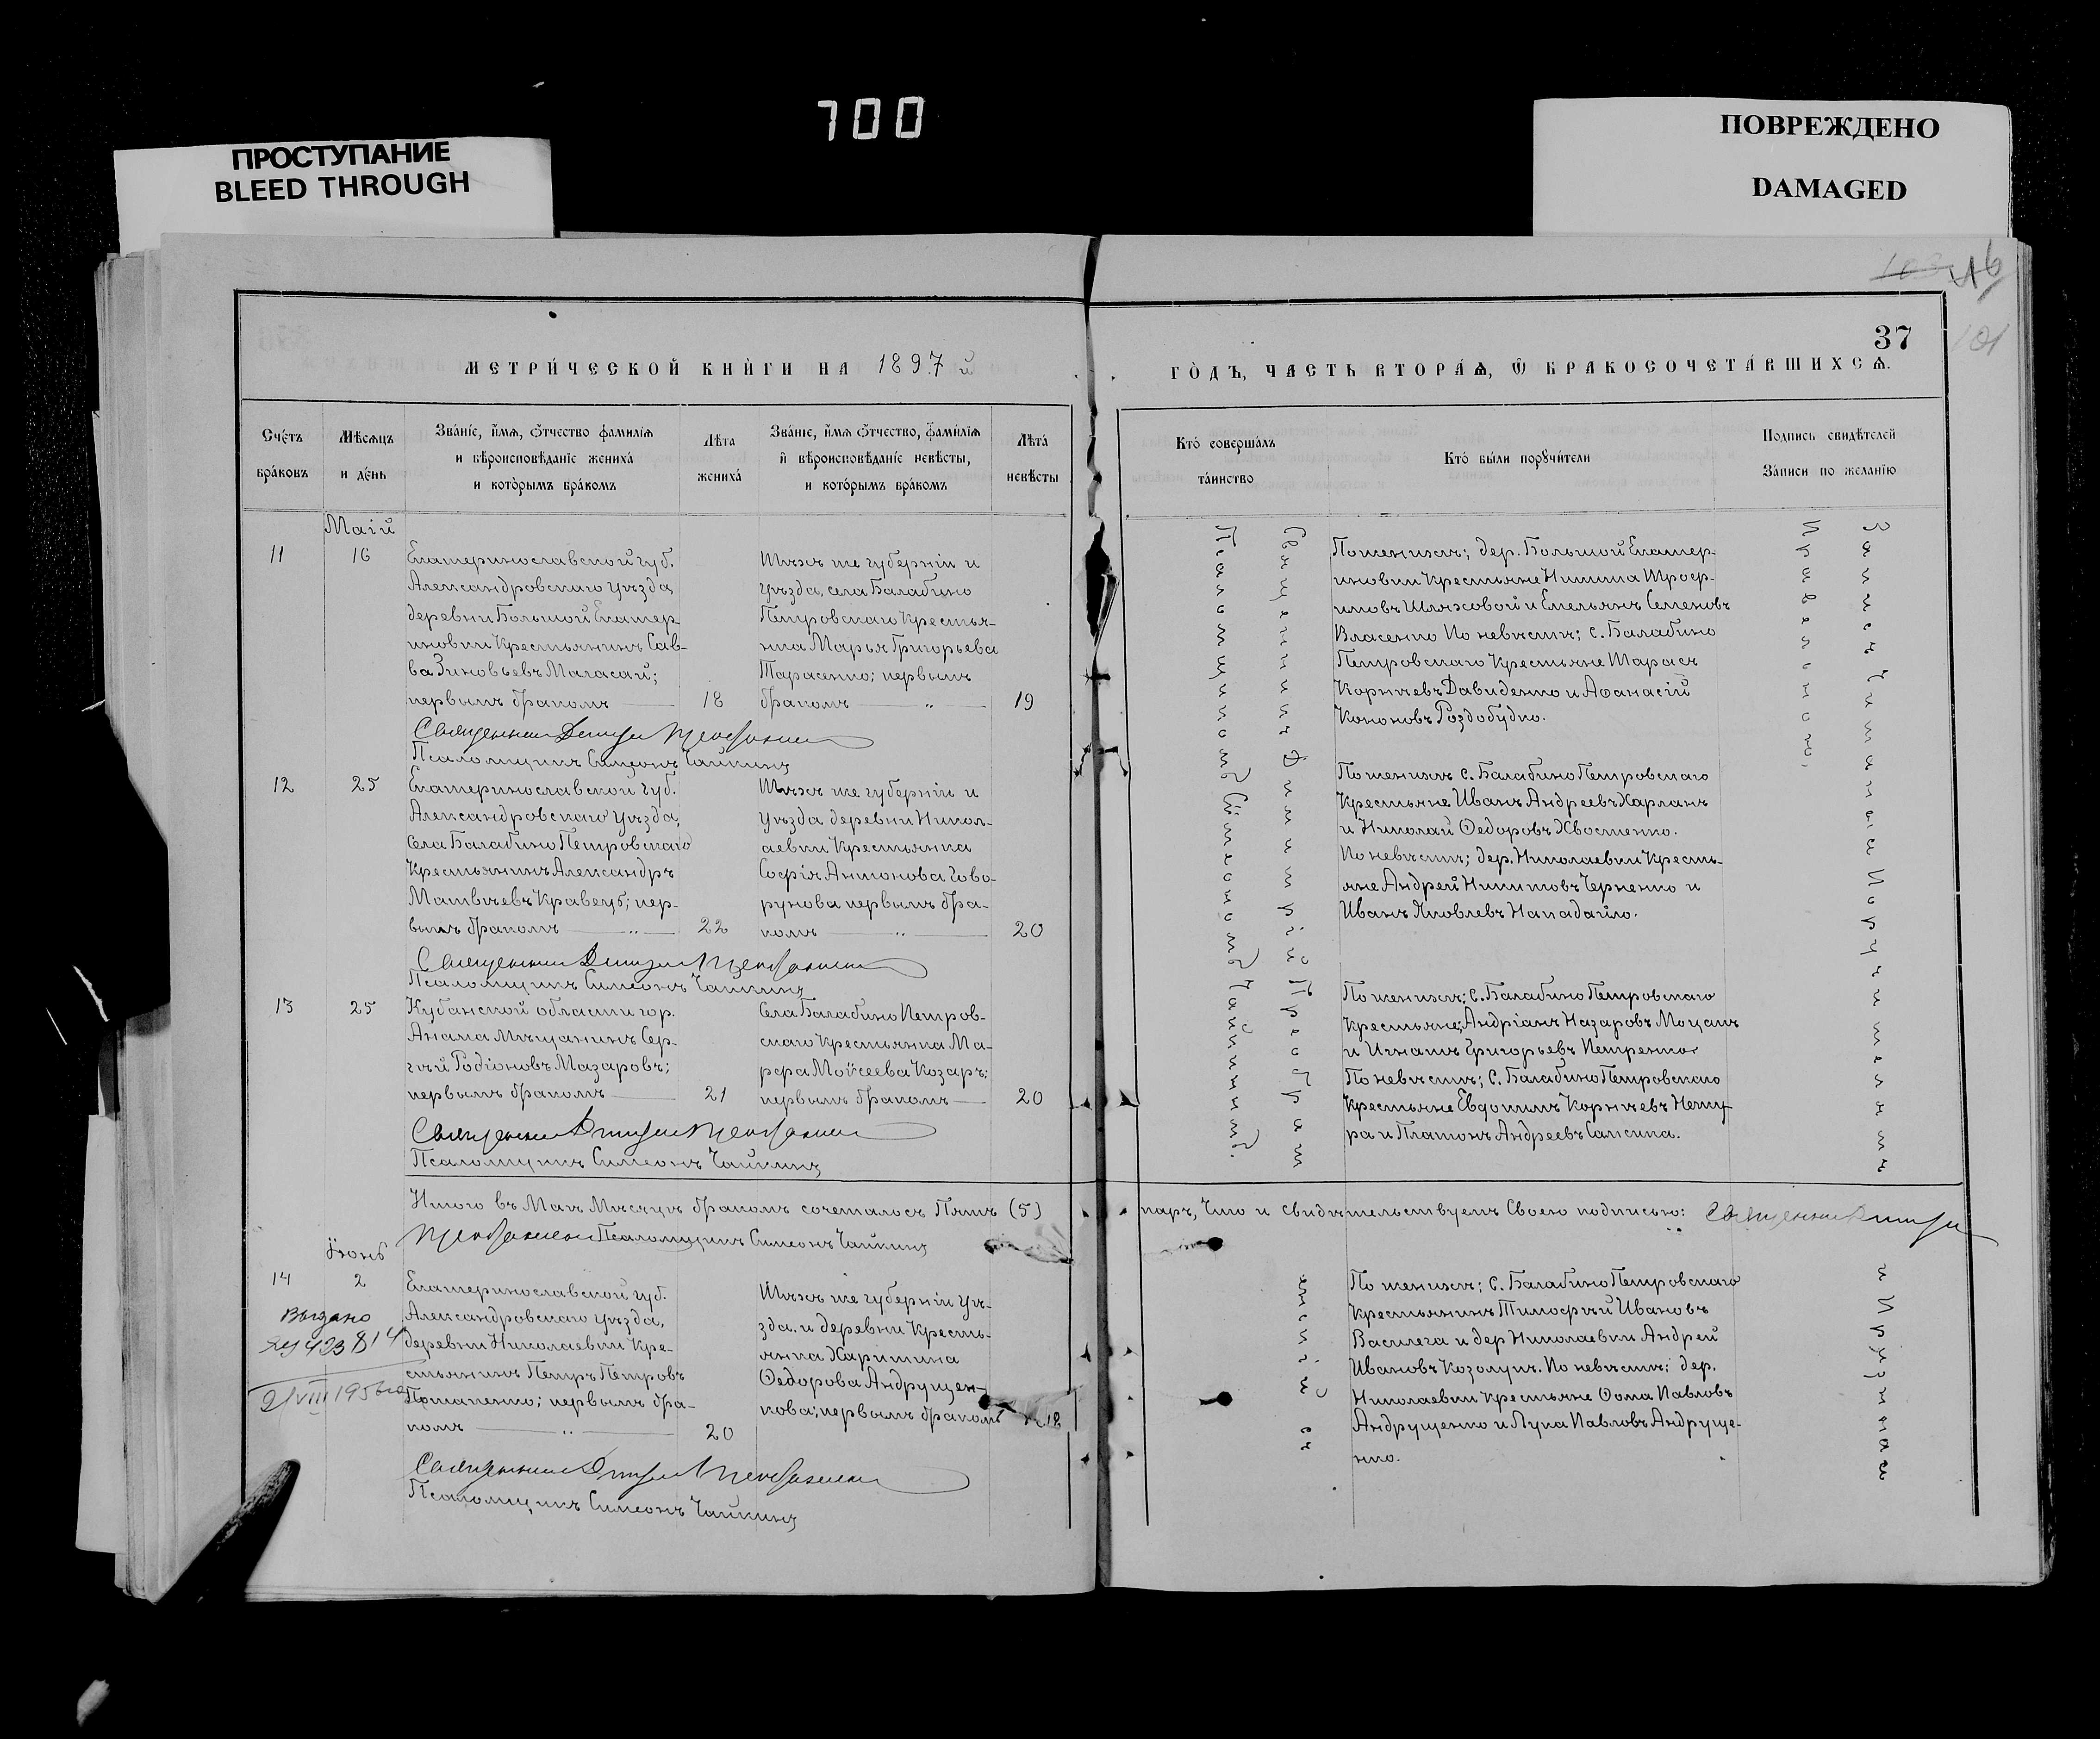 700
ПРОСТУПАНИЕ
BLEED THROUGH
ПОВРЕЖДЕНО
DAMAGED
37
МЕТРИ́ЧЕСКОЙ КНИ́ГИ НА 1897 й
ГО́ДЪ, ЧАСТЬ ВТОРА́Ѧ, Ѡ҆ БРАКОСОЧЕТА́ВШИХСѦ.
Сче́тъ
бра́ковъ
Мѣ́сѧцъ
и де́нь
Зва́нїе, и҆́мѧ, ѻ҆́тчество фамилїѧ
и вѣроисповѣ́данїе жениха̀
и кото́рымъ бра́комъ
Лѣ́та
жениха̀
Зва́нїе, и҆́мѧ ѻ҆́тчество, фами́лїѧ
и҆ вѣроисповѣ́данїе невѣ́сты,
и кото́рымъ бра́комъ
Лѣта̀
невѣ́сты
Кто̀ соверша́лъ
та́инство
Кто̀ бы́ли порꙋчи́тели
Подпись свидѣ́телей
За́писи по жела́нїю
Маій
11
16
Екатеринославской губ.
Александровскаго уѣзда
деревни Большой Екатер-
иновки Крестьянинъ Сав-
ва Зиновьевъ Магасай;
первымъ бракомъ
18
Тѣхъ же губерніи и
уѣзда, села Балабино
Петровскаго Крестья-
нка Марья Григорьева
Тарасенко; первымъ
бракомъ „
19
По женихѣ; дер. Большой Екатер-
иновки Крестьяне Никита Троф-
имовъ Шляховой и Емельянъ Семеновъ
Власенко По невѣстѣ; с. Балабино
Петровскаго Крестьяне Тарасъ
Корнѣевъ Давиденко и Аѳанасій
Кононовъ Роздобудко.
Священникъ Димитрій Преображенскій
Псаломщикъ Симеонъ Чайкинъ
12
25
Екатеринославской губ.
Александровскаго уѣзда,
Села Балабино Петровскаго
Крестьянинъ Александръ
Матвѣевъ Кравецъ; пер-
вымъ бракомъ „
22
Тѣхъ же губерніи и
уѣзда деревни Никол-
аевки Крестьянка
Софія Антонова Гово-
рунова первымъ бра-
комъ „
20
По женихѣ с. Балабино Петровскаго
Крестьяне Иванъ Андреевъ Харланъ
и Николай Ѳедоровъ Хвостенко.
По невѣстѣ; дер. Николаевки Кресть-
яне Андрей Никитовъ Черненко и
Иванъ Яковлевъ Нападайло.
Священникъ Димитрій Преображенскій
Псаломщикъ Симеонъ Чайкинъ
13
25
Кубанской области гор.
Анапа Мѣщанинъ Сер-
гѣй Родіоновъ Мазаровъ;
первымъ бракомъ
21
Села Балабино Петров-
скаго Крестьянка Ма-
рфа Моѵсеева Козаръ;
первымъ бракомъ
20
По женихѣ; С. Балабино Петровскаго
Крестьяне; Андріанъ Назаровъ Моцакъ
и Игнатъ Григорьевъ Петренко
По невѣстѣ; С. Балабино Петровскаго
Крестьяне Евдокимъ Корнѣевъ Нету-
ра и Платонъ Андреевъ Саксина.
Священникъ Димитрій Преображенскій
Псаломщикъ Симеонъ Чайкинъ
Священникъ Димитрій Преображ
Псаломщикомъ Симеономъ Чайкинымъ.
Запись Читана и Поручит
Неграмотны.
Итого въ Маѣ Мѣсяцѣ бракомъ сочеталось Пять (5)
паръ, Что и свидѣтельствуемъ Своею подписью: Священникъ Димитрій
Преображенскій Псаломщикъ Симеонъ Чайкинъ
Іюнь
14
2
Выдано
Екатеринославской губ.
Александровскаго уѣзда,
деревни Николаевки Кре-
стьянинъ Петръ Петровъ
Потапенко; первымъ бра-
комъ „
20
Тѣхъ же губерніи уѣ-
зда. и деревни Кресть-
янка Харитина
Ѳедорова Андрущен-
кова; первымъ бракомъ
18
По женихѣ; С. Балабино Петровскаго
Крестьянинъ Тимофѣй Ивановъ
Василега и дер Николаевки Андрей
Ивановъ Козолупъ. По невѣстѣ; дер.
Николаевки Крестьяне Ѳома Павловъ
Андрущенко и Лука Павловъ Андруще-
нко.
енскій съ
Священникъ Димитрій Преображенскій
Псаломщикъ Симеонъ Чайкинъ